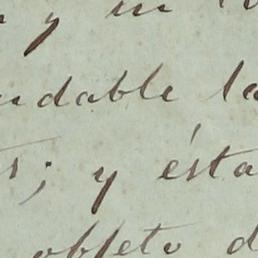 y in
ndable la
; y ésta
objeto d